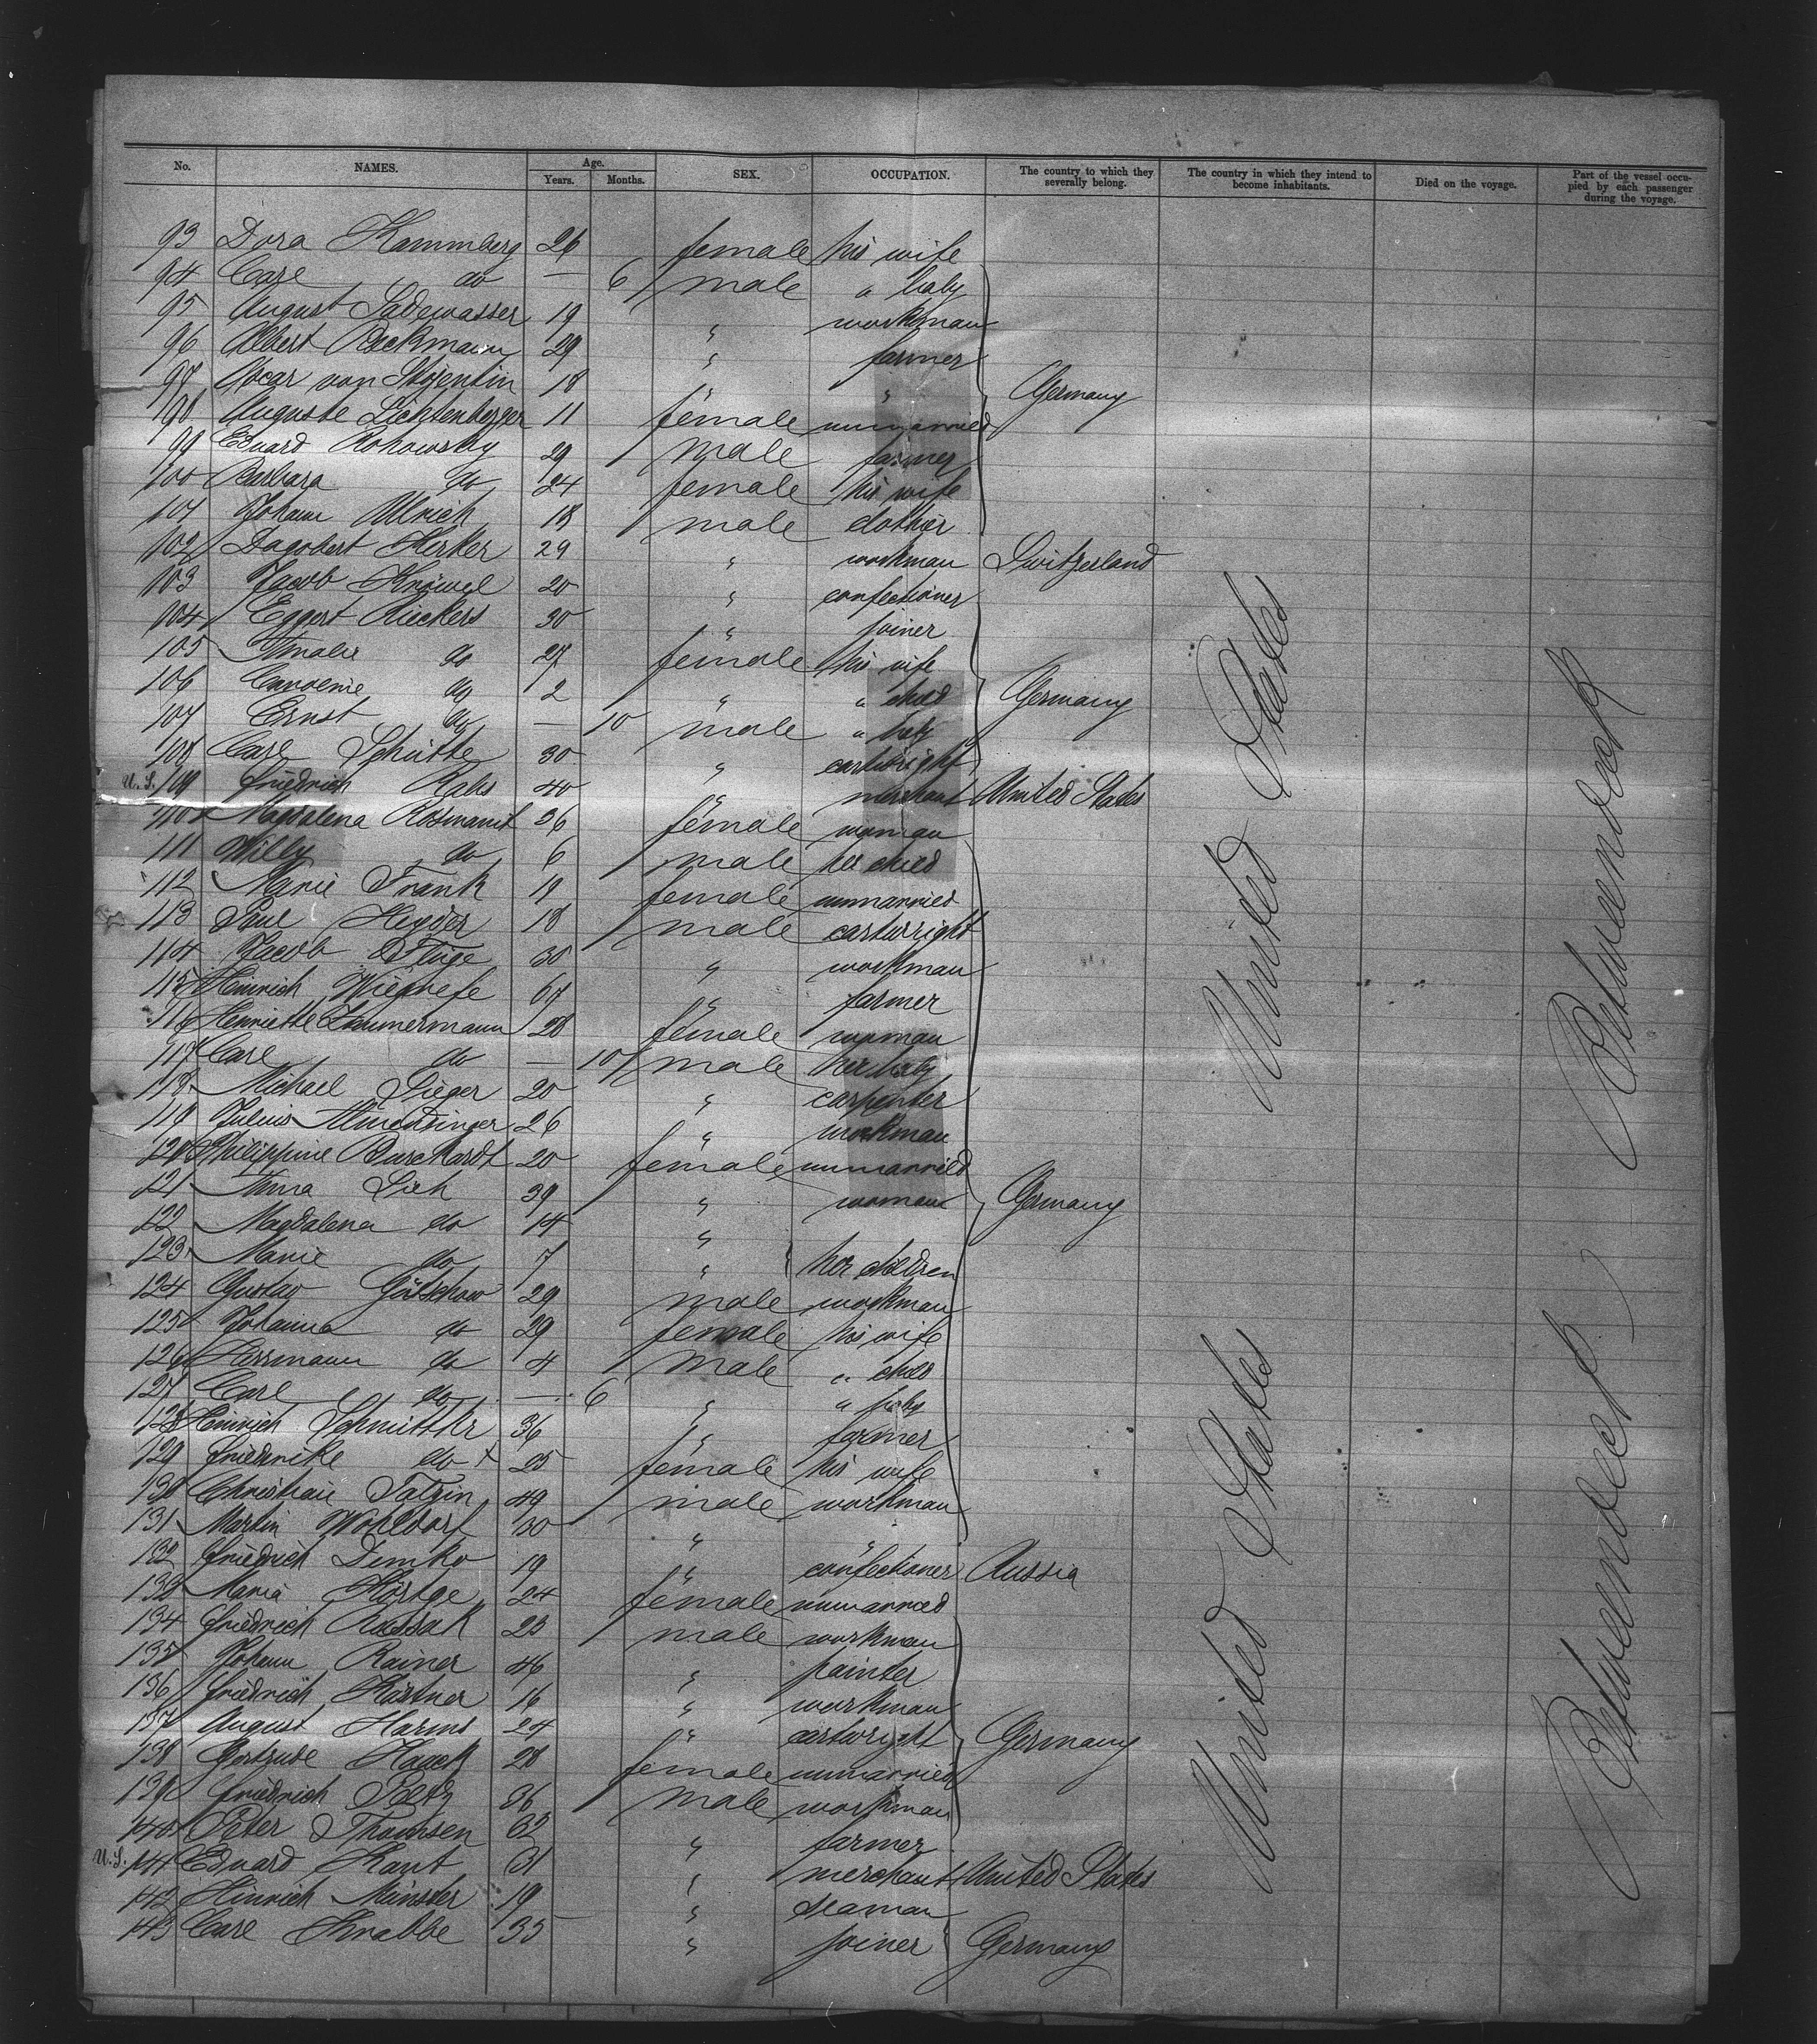 No. NAMES. Age. Years. Months. SEX. OCCUPATION. The country to which they severally belong. The country in which they intend to become inhabitants. Died on the voyage. Part of the vessel occupied by each passenger during the voyage.
93 Dora Kammberg 26 female his wife
94 Carl do — 6 male " baby
95 August Sadewasser 19 " workman
96 Albert Beckmann 29 " farmer
97 Oscar von Stojentin 18 " " Germany
98 Auguste Lichtenberger 11 female unmarried
99 Eduard Rohowsky 29 male farmer
100 Barbara do 24 female his wife
101 Johann Ullrich 18 male clothier
102 Dagobert Herker 29 " workman Switzerland
103 Jacob Knöwel 20 " confectioner
104 Eggert Rieckers 30 " joiner
105 Amalie do 27 female his wife
106 do 2 " " child Germany
107 Ernst do — 10 male " baby
108 Carl Schütte 30 " cartwright
U.S. 109 Friedrich Rahs 40 " merchant United States
110 Magdalena 36 female woman
111 Willy do 6 male her child
112 Marie Frank 19 female unmarried
113 Paul Heyder 18 male cartwright
114 Jacob 30 " workman
115 Heinrich Wiegrefe 67 " farmer
116 Henriette Zimmermann 28 female woman
117 Carl do — 10 male her baby
118 Michael Sieger 20 " carpenter
119 Julius Almendinger 26 " workman
120 Philippine Burchardt 20 female unmarried
121 Anna Sieh 39 " woman Germany
122 Magdalena do 14 "
123 Marie do 7 " her children
124 Gustav Götschow 29 male workman
125 Johanna do 29 female his wife
126 Herrmann do 4 male " child
127 Carl do — 6 " " baby
128 Heinrich 36 " farmer
129 Friedrike do 25 female his wife
130 Christian 49 male workman
131 Martin Wohldorf 30 " "
132 Friedrich Demko 19 " confectioner Russia
133 Maria Körtge 24 female unmarried
134 Friedrich Russak 23 male workman
135 Johann Rainer 46 " painter
136 Friedrich Kästner 16 " workman
137 August Harms 24 " cartwright Germany
138 Gertrude Haack 28 female unmarried
139 Friedrich 36 male workman
140 Peter Thomsen 62 " farmer
U.S. 141 Eduard Kant 31 " merchant United States
142 Hinrich Münster 19 " seaman
143 Carl Knabbe 35 " joiner Germany
United States
United States
Betweendeck
Betweendeck